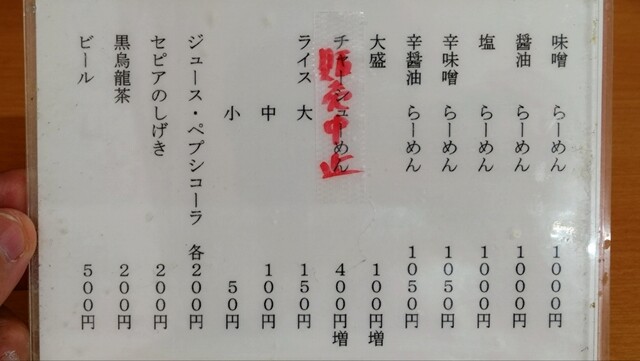 味噌 らーめん 1000円
醤油 らーめん 1000円
塩 らーめん 1000円
辛味噌 らーめん 1050円
辛醤油 らーめん 1050円
大盛 100円増
チャーシューめん 400円増
販売中止
ライス 大 150円
中 100円
小 50円
ジュース・ペプシコーラ 各200円
セピアのしげき 200円
黒烏龍茶 200円
ビール 500円